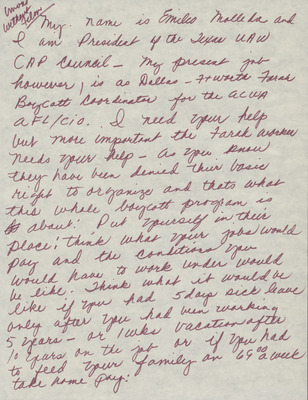 My name is Emilio Molleda and
I am President of the Texas UAW
CAP Council - My present job
however, is as Dallas - Ft Worth Farah
Boycott Coordinator for the ACWA
AFL/CIO. I need your help
but more important the Farah Worker
needs your help - As you know
they have been denied their basic
right to organize and thats what
this whole boycott program is
about: Put yourself in their
place: think what your jobs would
pay and the conditions you
would have to work under would
be like. Think what it would be
like if you had 5 days sick leave
only after you had been working
5 years - or 1 wks vacation after
10 years on the job or if you had
to feed your family on 69.00 a week
take home pay.